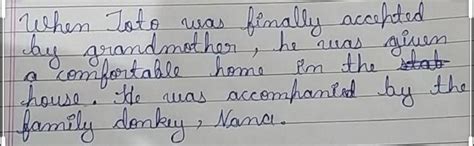 When Toto was finally accepted
by grandmother, he was given
a comfortable home in the stab
house. He was accompanied by the
family donkey, Nana.